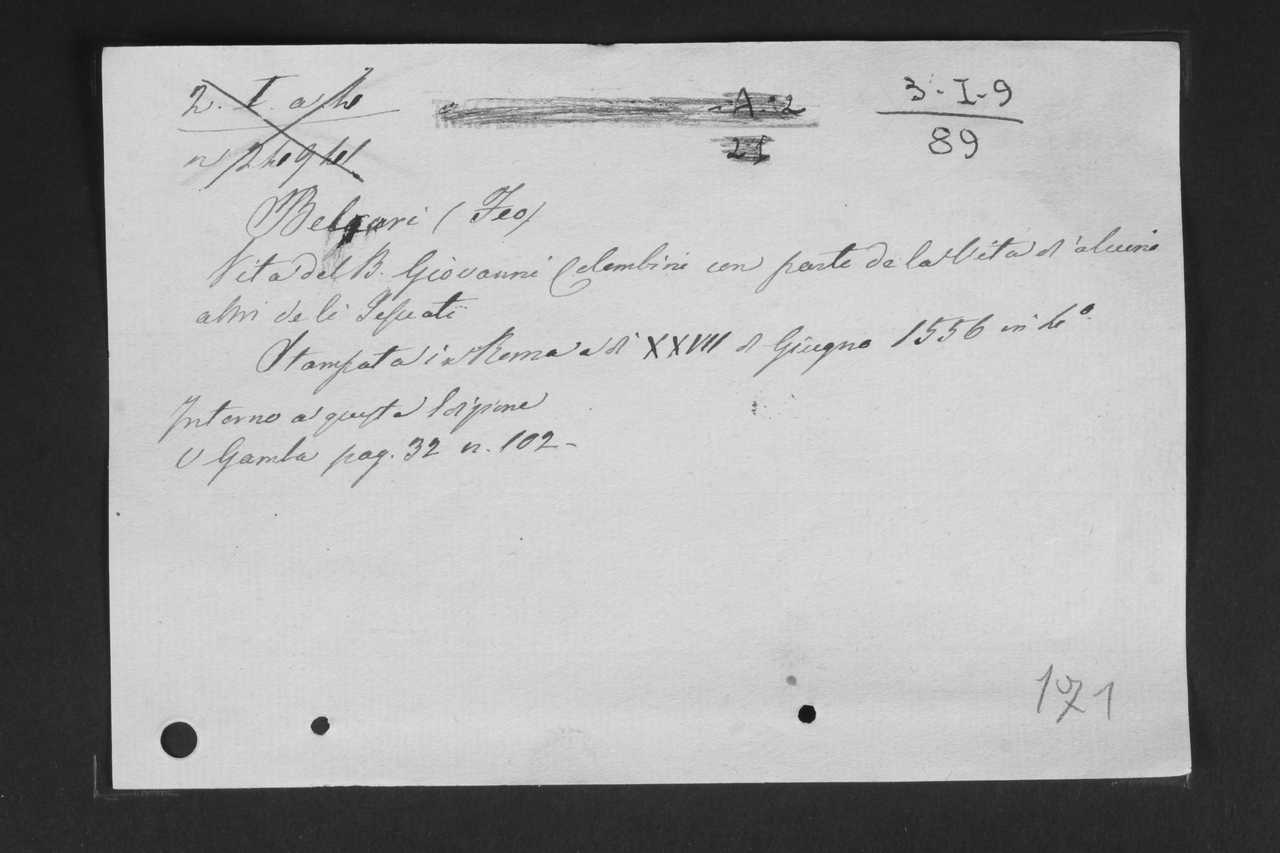 A. 2
21
3-I-9
89
Belcari (Feo)
Vita del B. Giovanni Colombini con parte de la Vita d'alcuni
altri de li Jesuati
Stampata in Roma a di XXVII di Giugno 1556 in 4º
Intorno a questa edizione
V Gamba pag. 32 n. 102-
171